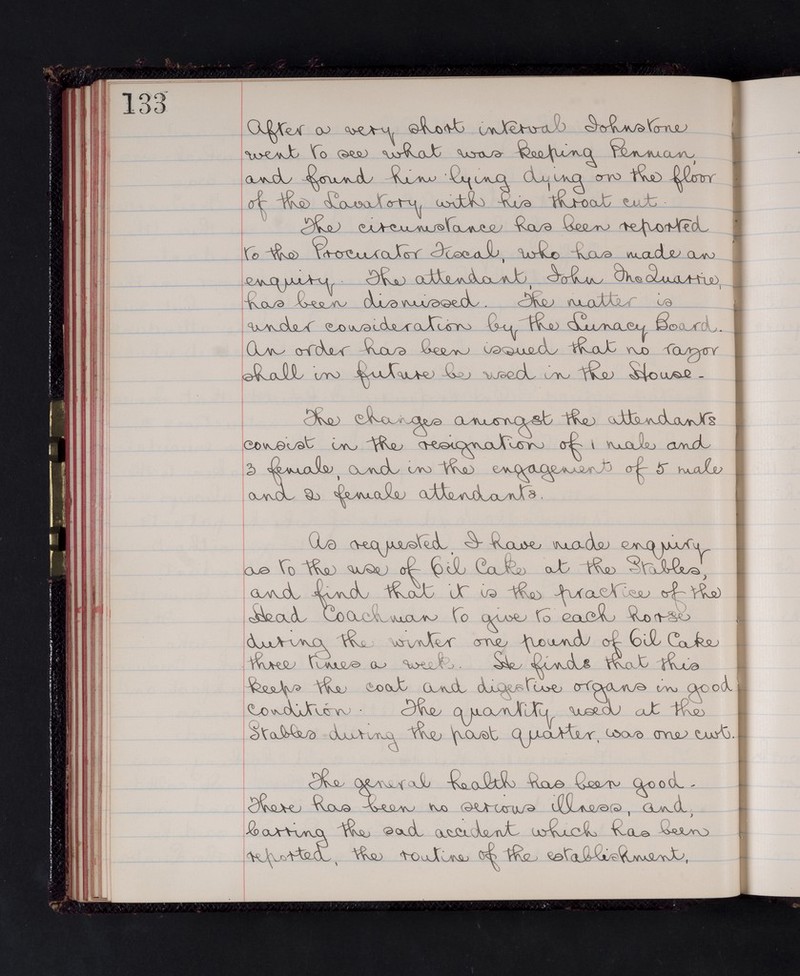 133
After a very short interval Johnstone
went to see what was keeping Penman,
and found him lying dying on the floor
of the Lavatory with his throat cut.
The circumstance has been reported
to the Procurator Fiscal, who has made an
enquiry. The attendant, John McQuarrie,
has been dismissed. The matter is
under consideration by the Lunacy Board.
An order has been issued that no razor
shall in future be used in the House.
The changes amongst the attendants
consist in the resignation of 1 male and
3 female, and in the engagement of 5 male
and 2 female attendants.
As requested, I have made enquiry
as to the use of Oil Cake at the Stables,
and find that it is the practice of the
Head Coachman to give to each horse
during the winter one pound of Oil Cake
three times a week. He finds that this
keeps the coat and digestive organs in good
condition. The quantity used at the
Stables during the past quarter, was one cwt.
The general health has been good.
There has been no serious illness, and,
barring the sad accident which has been
reported, the routine of the establishment,